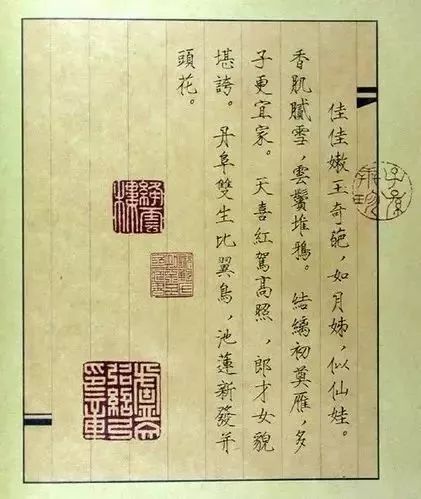 佳佳嫩玉奇葩，如月姊，似仙娃。
香肌膩雪，雲鬢堆鴉。結縭初奠雁，多
子更宜家。天喜紅駕高照，郎才女貌
堪誇。丹阜雙生比翼鳥，池蓮新發并
頭花。
子京
絳雲樓